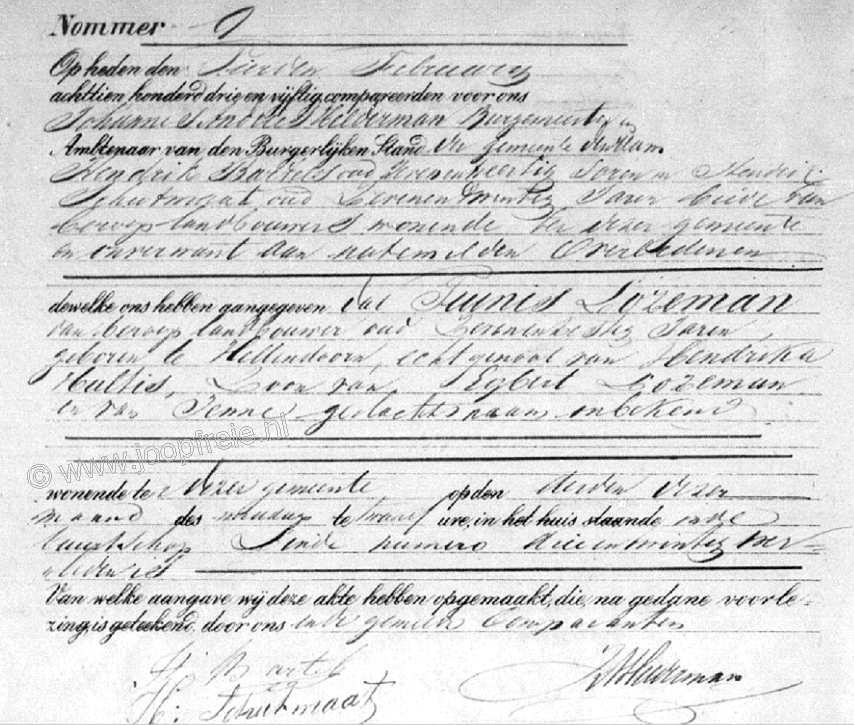 Nommer 9
Op heden den Vierden Februarij
achttien honderd drie en vijftig, compareerden voor ons
Johanne Helderman Burgemeester
Ambtenaar van den Burgerlijken Stand der gemeente
Hendrik Bartels oud Jaren en Hendrik
Schutmaat, oud Zeven en twintig Jaren beide van
beroep landbouwers wonende in dezer gemeente
en onverwant aan natemelden Overledenen
dewelke ons hebben aangegeven dat Teunis Lozeman
van beroep landbouwer oud Zeven en zestig Jaren,
geboren te Hellendoorn, echtgenoot van Hendrika
Hultis, Zoon van Egbert Lozeman
en van Jenne geslachtsnaam onbekend
© www.joopfreie.nl
wonende te dezer gemeente op den derden dezer
maand des middag te twaalf ure, in het huis staande
buurtschap Linde numero drieentwintig over-
leden is
Van welke aangave wij deze akte hebben opgemaakt, die, na gedane voorle-
zing, is geteekend door ons en de gemelde Comparanten
H: Bartels
H: Schutmaat
Helderman